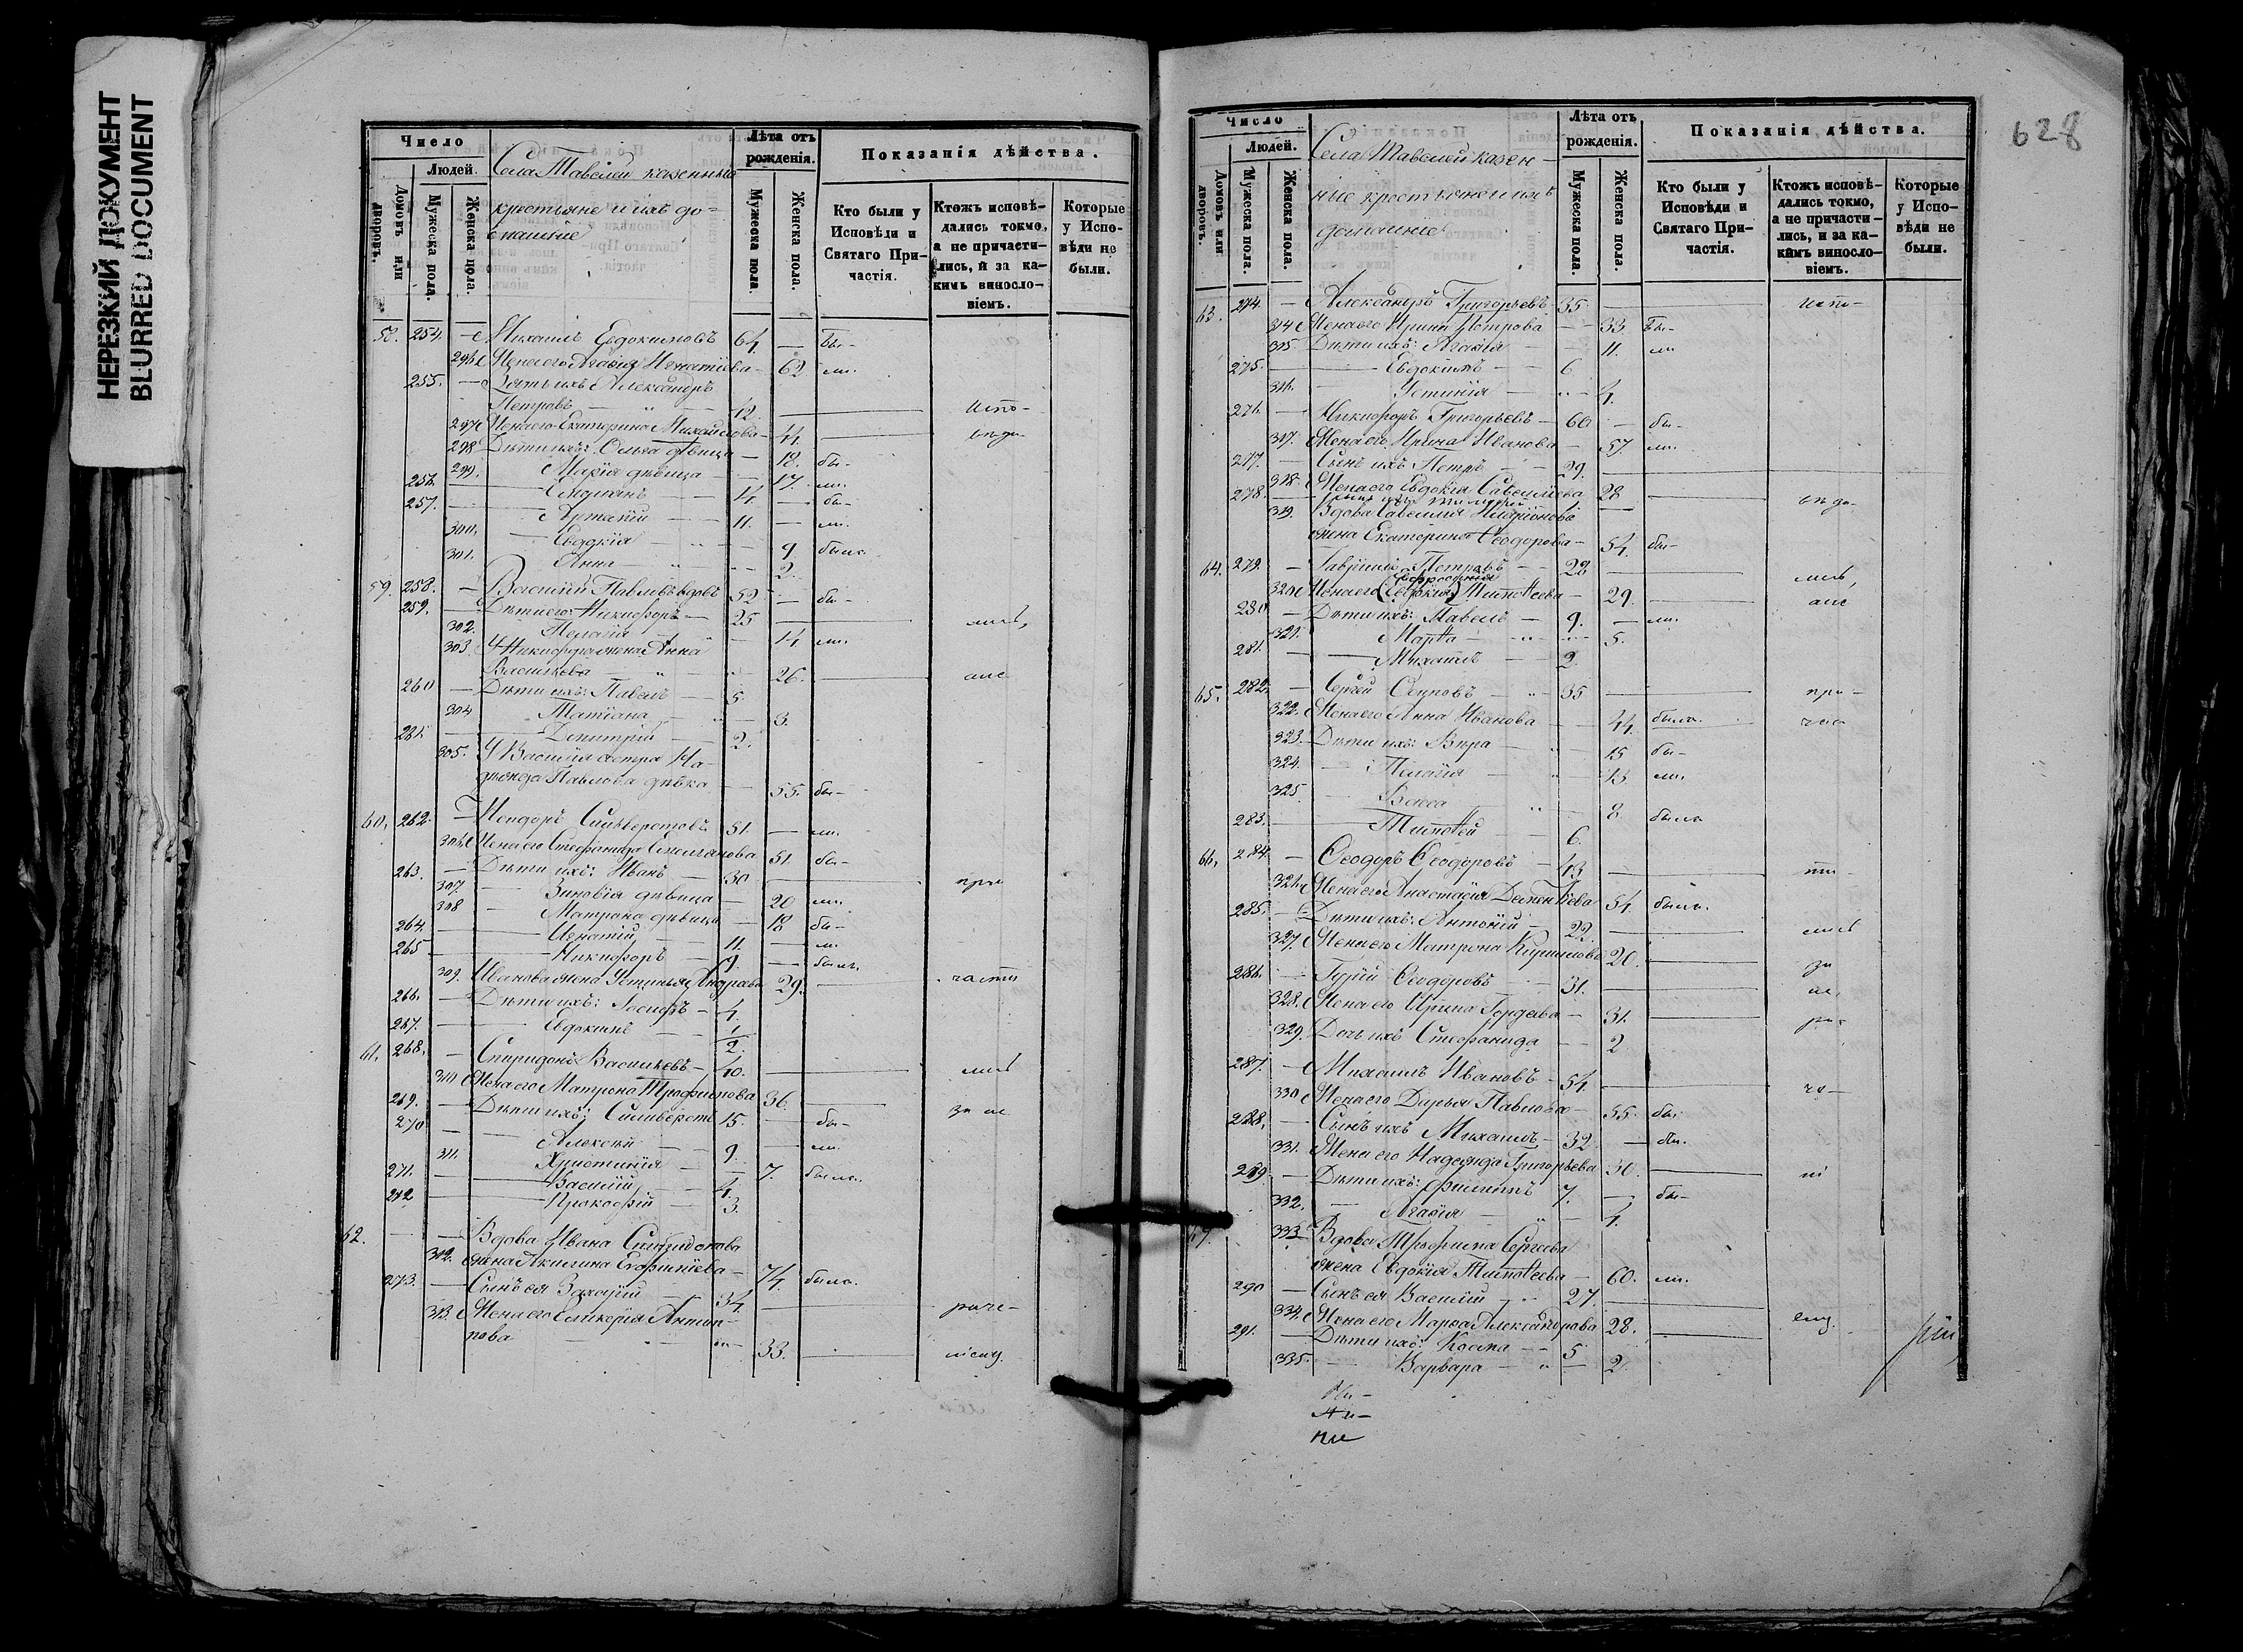 НЕРЕЗКИЙ ДОКУМЕНТ
BLURRED DOCUMENT
Число
Людей.
Домовъ или дворовъ.
Мужеска пола.
Женска пола.
Села Тавелей казенные
крестьяне и ихъ до-
машние
Лѣта отъ рожденія.
Мужеска пола.
Женска пола.
Показанія дѣйства.
Кто были у Исповѣди и Святаго Причастія.
Ктожъ исповѣдались токмо, а не причастились, и за какимъ винословіемъ.
Которые у Исповѣди не были.
58. 254. — Михаилъ Евдокимовъ 64 — бы-
296 Жена его Агафія Игнатіева — 62 ли.
255. — Зять ихъ Александръ
Петровъ — 42. — испо-
297 Жена его Екатерина Михайлова — 44 — вѣда-
298 Дѣти ихъ: Ольга дѣвица — 18. бы-
299. Марія дѣвица — 17. ли.
256 — — 14 — бы-
257. — 11. — ли.
300. Евдокія — 9 была
301. Анна — 2.
59. 258. — Василій Павловъ вдовъ 52 — бы-
259. — Дѣти его: Никифоръ — 25 — лись,
302. Пелагія — 14 ли.
303. Никифора жена Анна
Васильева — 26. —
260 — Дѣти ихъ: Павелъ — 5.
304 Татіана — 3.
261. — Димитрій — 2.
305. Василія сестра На-
дежда Павлова дѣвка — 55. бы-
60. 262. — Сильверстовъ 51. — ли.
306 Жена его Стефанида 51. бы-
263. — Дѣти ихъ: Иванъ — 30 — при
307 Зиновія дѣвица — 20 ли.
308 Матрона дѣвица — 18 бы-
264. — Игнатій — 11. — ли.
265 — Никифоръ — 9. — былъ
309. Иванова жена Устинья 29. — части
266. — Дѣти ихъ: Іосифъ — 4.
267. — Евдокимъ — 1/2.
61. 268. — Спиридонъ Васильевъ — 40. — лись
310 Жена его Матрона Трофимова 36. — за не
269. — Дѣти ихъ: Сильверстъ 15. — бы-
270 — Алексѣй — 9. — ли.
311. Христинія — 7. была.
271. — Василій — 4.
272 — Прокофій — 3.
62. — Вдова Ивана Спиридонова
312. жена Акилина — 74. была.
273. — Сынъ ея Захарій — 34. — раче-
313. Жена его Гликерія Антип-
пова — 33. — ніемъ.
628
Число
Людей.
Домовъ или дворовъ.
Мужеска пола.
Женска пола.
Села Тавелей казен-
ные крестьяне и ихъ
домашние
Лѣта отъ рожденія.
Мужеска пола.
Женска пола.
Показанія дѣйства.
Кто были у Исповѣди и Святаго Причастія.
Ктожъ исповѣдались токмо, а не причастились, и за какимъ винословіемъ.
Которые у Исповѣди не были.
63. 274. — Александръ Григорьевъ 35 — испо-
314 Жена его Ирина Петрова — 33. бы-
315 Дѣти ихъ: Агафія — 11. ли
275. — Евдокимъ — 6
316. Устинія — 4.
276. — Никифоръ Григорьевъ — 60 — бы-
317. Жена его Ирина Иванова — 57. ли.
277. — Сынъ ихъ Петръ — 29. —
318. Жена его Евдокія Савельева 28 — вѣда-
278. — сынъ ихъ Тимофей
319. Вдова Савелия Иларіонова
жена Екатерина Ѳеодорова — 54. бы-
64. 279. — Гавріилъ Петровъ — 28 — лись,
Евфросинія
320 Жена его (Евдокія) Тимоѳеева — 29. —
280. — Дѣти ихъ: Павелъ — 9. — ли.
321. Марѳа — 5.
281. — Михаилъ — 2.
65. 282. — Сергѣй Осиповъ — 35 — при-
322. Жена его Анна Иванова — 44. была. — час
323. Дѣти ихъ: Вѣра — 15 бы-
324. Пелагія — 13. ли.
325. Васса — 8 была
283. — Тимоѳей — 6.
66. 284. — Ѳеодоръ Ѳеодоровъ — 43 — ти-
326. Жена его Анастасія Дементіева 54. была.
285. — Дѣти ихъ: Антоній — 22. — лись
327. Жена его Матрона Кирилова 20. — за
286. — Гурій Ѳеодоровъ — 31. — не,
328. Жена его Ирина Гордѣева — 31. —
329. Дочь ихъ Стефанида — 2
287. — Михаилъ Ивановъ — 54. — че-
330 Жена его Дарья Павлова — 55. бы-
288. — Сынъ ихъ Михаилъ — 32 — бы.
331. Жена его Надежда Григорьева 30. — ні
289. — Дѣти ихъ: Филиппъ 7. — бы-
332. Агафія — 4.
67. 333. Вдова Трофима Сергѣева
жена Евдокія Тимоѳеева — 60. ли.
290 — Сынъ ея Василій — 27. —
334. Жена его Марѳа Александрова 28. — емъ.
291. — Дѣти ихъ: Косма — 5
335. Варвара — 2.